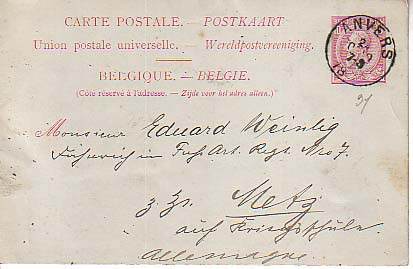 CARTE POSTALE. — POSTKAART
Union postale universelle. — Wereldpostvereeniging.
BELGIQUE. — BELGIE.
(Côté réservé à l'adresse. — Zijde voor het adres alleen.)
ANVERS
Monsieur Eduard Weinlig
Fähnrich im Fuß. Art. Regt. No 7.
z. Zt. Metz
auf Kriegsschule
Allemagne